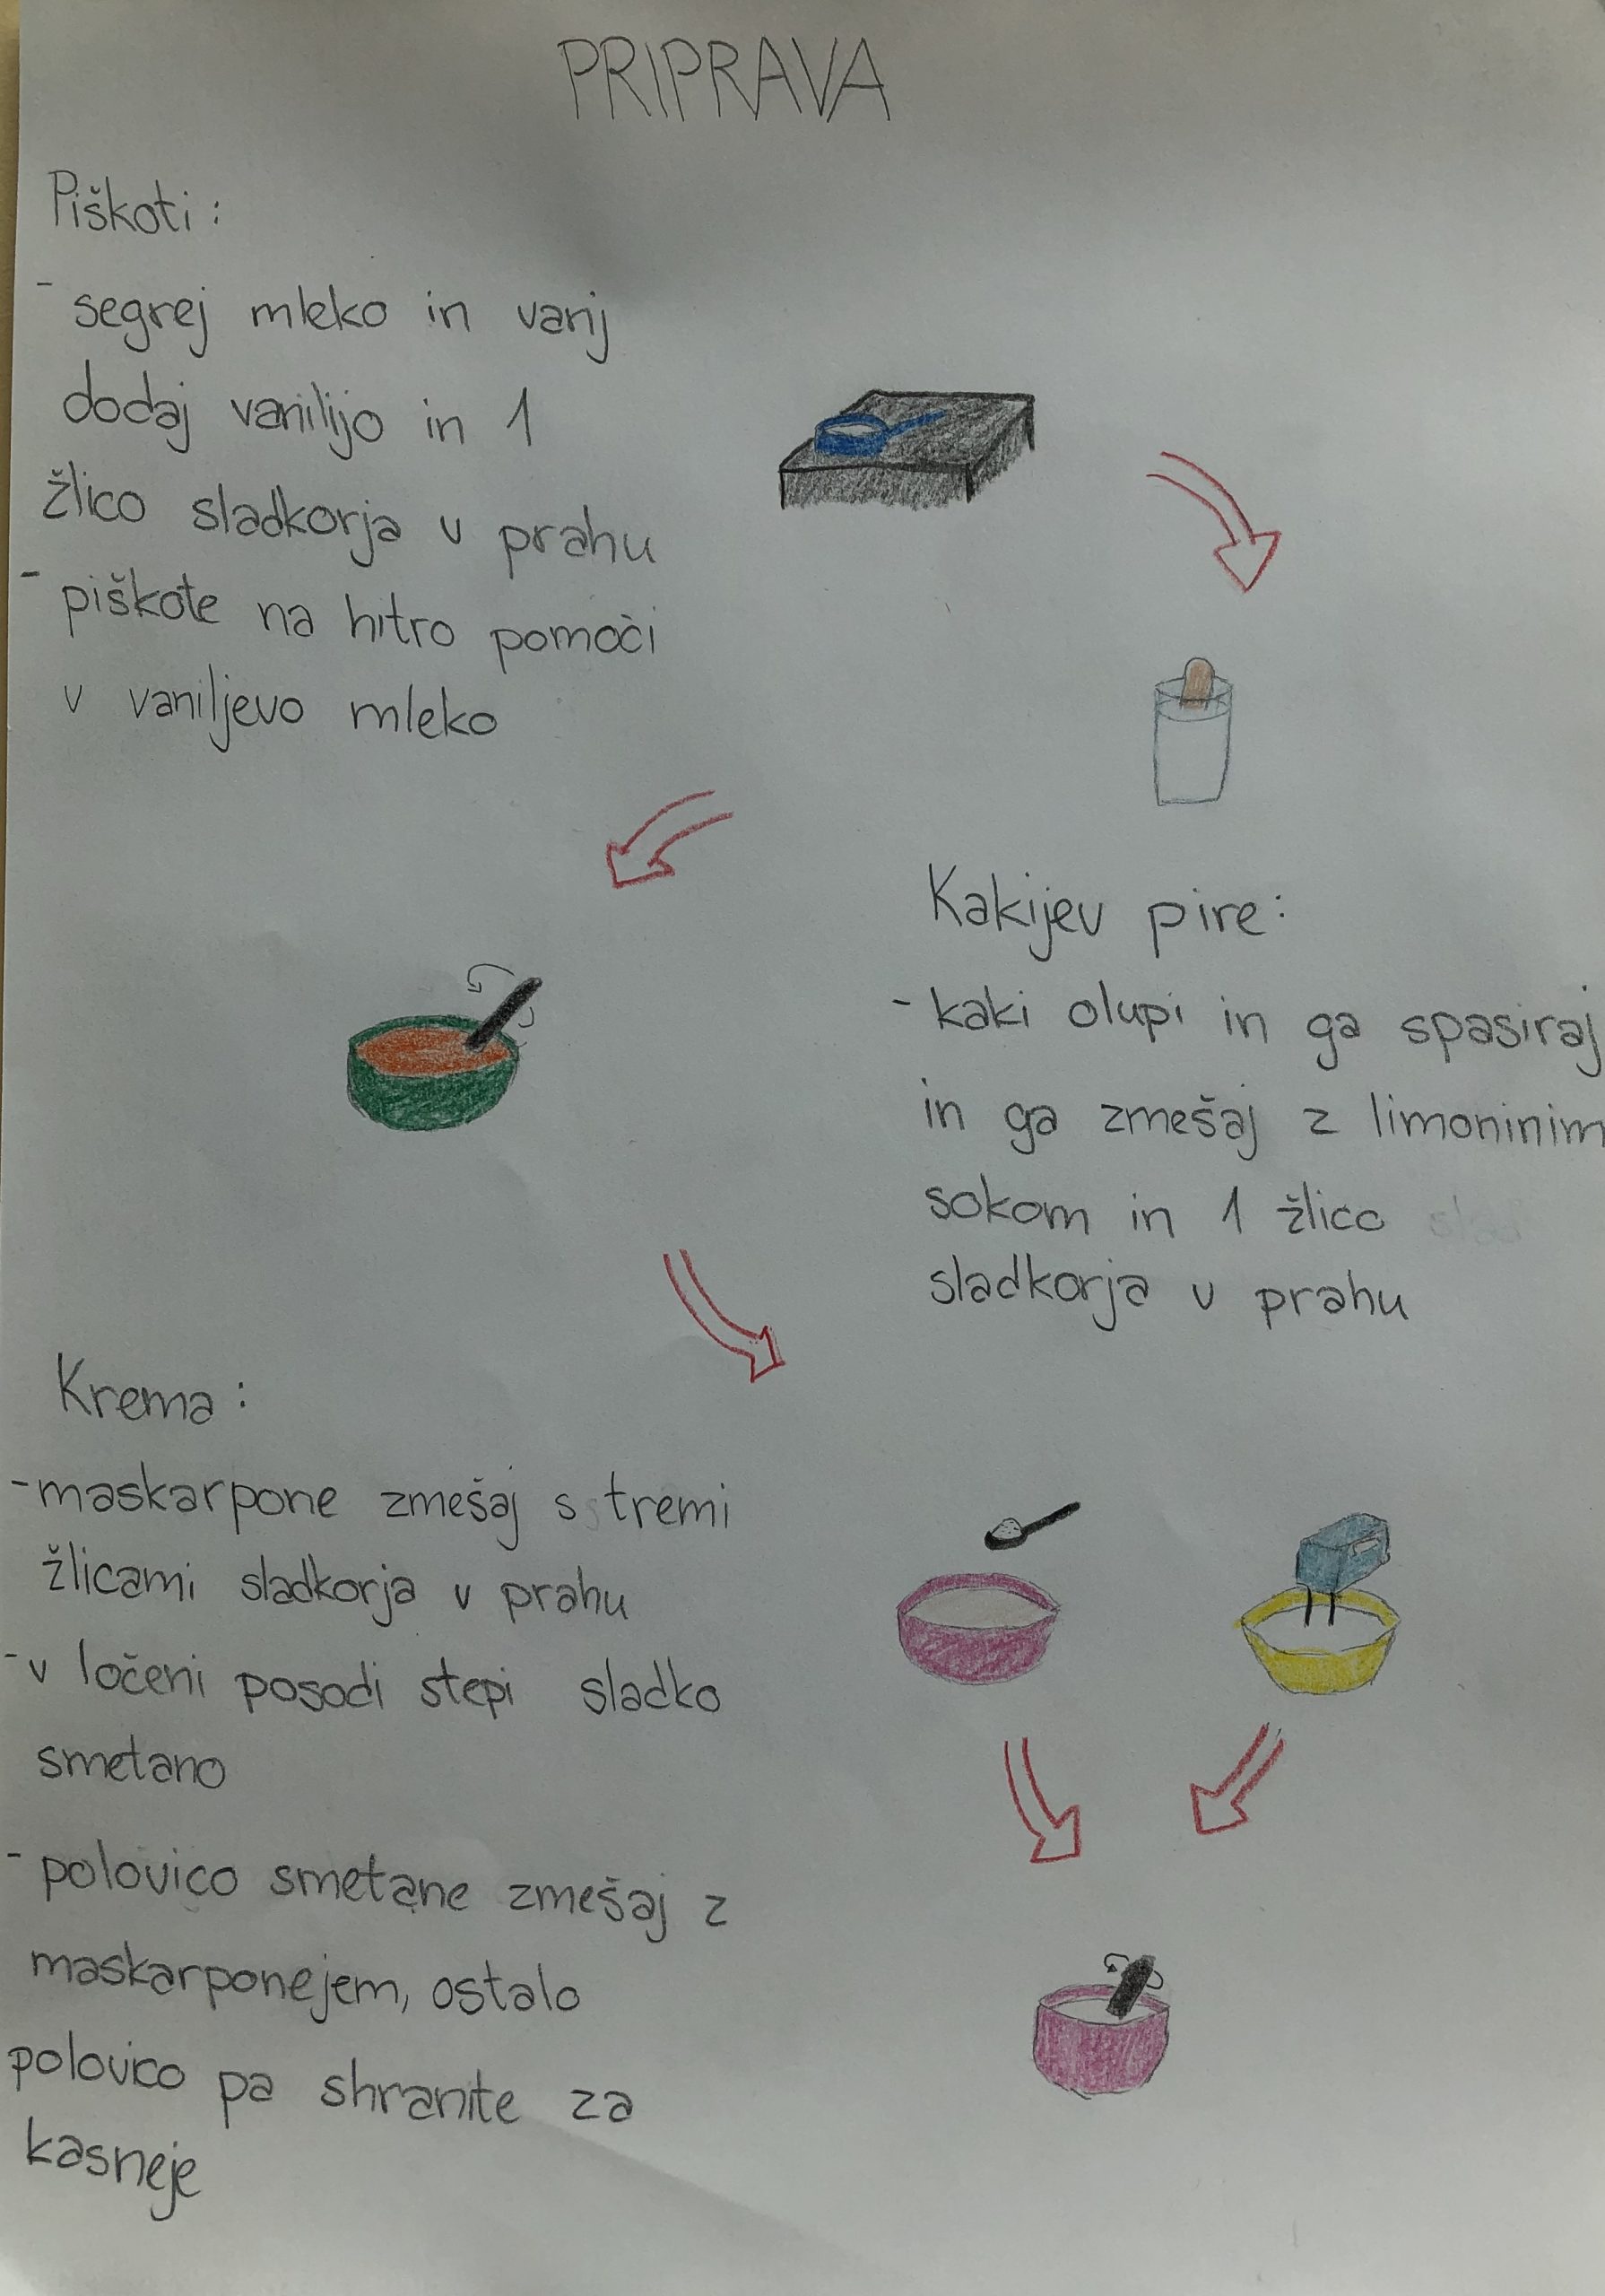 PRIPRAVA
Piškoti:
- segrej mleko in vanj
dodaj vanilijo in 1
žlico sladkorja v prahu
- piškote na hitro pomoči
v vaniljevo mleko
Kakijev pire:
- kaki olupi in ga spasiraj
in ga zmešaj z limoninim
sokom in 1 žlico
sladkorja v prahu
Krema:
- maskarpone zmešaj s tremi
žlicami sladkorja v prahu
- v ločeni posodi stepi sladko
smetano
- polovico smetane zmešaj z
maskarponejem, ostalo
polovico pa shranite za
kasneje